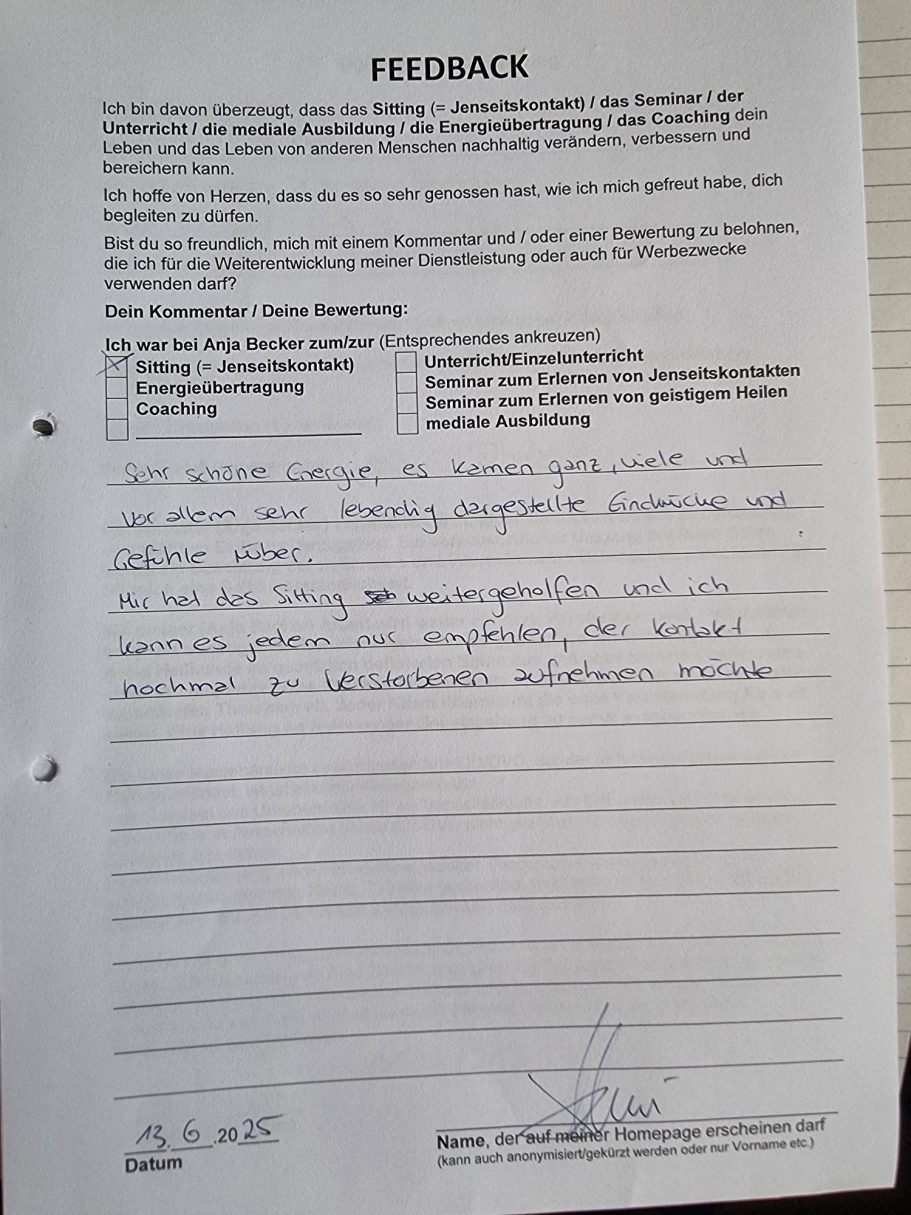 FEEDBACK
Ich bin davon überzeugt, dass das Sitting (= Jenseitskontakt) / das Seminar / der
Unterricht / die mediale Ausbildung / die Energieübertragung / das Coaching dein
Leben und das Leben von anderen Menschen nachhaltig verändern, verbessern und
bereichern kann.
Ich hoffe von Herzen, dass du es so sehr genossen hast, wie ich mich gefreut habe, dich
begleiten zu dürfen.
Bist du so freundlich, mich mit einem Kommentar und / oder einer Bewertung zu belohnen,
die ich für die Weiterentwicklung meiner Dienstleistung oder auch für Werbezwecke
verwenden darf?
Dein Kommentar / Deine Bewertung:
Ich war bei Anja Becker zum/zur (Entsprechendes ankreuzen)
Sitting (= Jenseitskontakt)
Energieübertragung
Coaching
Unterricht/Einzelunterricht
Seminar zum Erlernen von Jenseitskontakten
Seminar zum Erlernen von geistigem Heilen
mediale Ausbildung
Sehr schöne Energie, es kamen ganz, viele und
vor allem sehr lebendig dargestellte Eindrücke und
Gefühle rüber.
Mir hat das Sitting weitergeholfen und ich
kann es jedem nur empfehlen, der Kontakt
nochmal zu Verstorbenen aufnehmen möchte
13. 6 .2025
Datum
Name, der auf meiner Homepage erscheinen darf
(kann auch anonymisiert/gekürzt werden oder nur Vorname etc.)